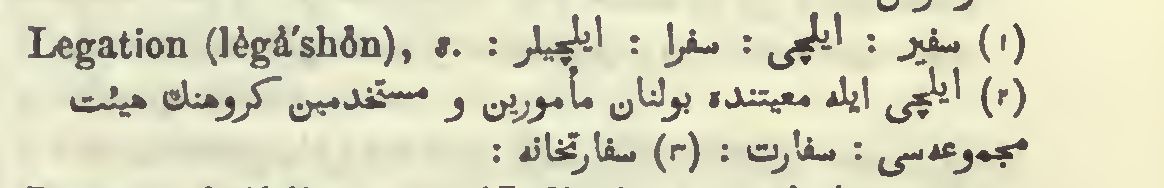 Legation (lėgȧ′shȯn), s. (١) سفیر : ایلچی : سفرا : ایلچیلر :
(٢) ایلچی ایله معیتنده بولنان مأمورین و مستخدمین كروهنك هیئت
مجموعه‌سی : سفارت : (٣) سفارتخانه :